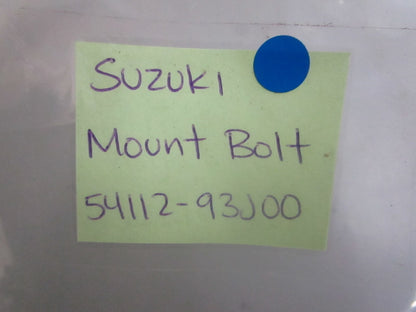 Suzuki
Mount Bolt
54112-93J00